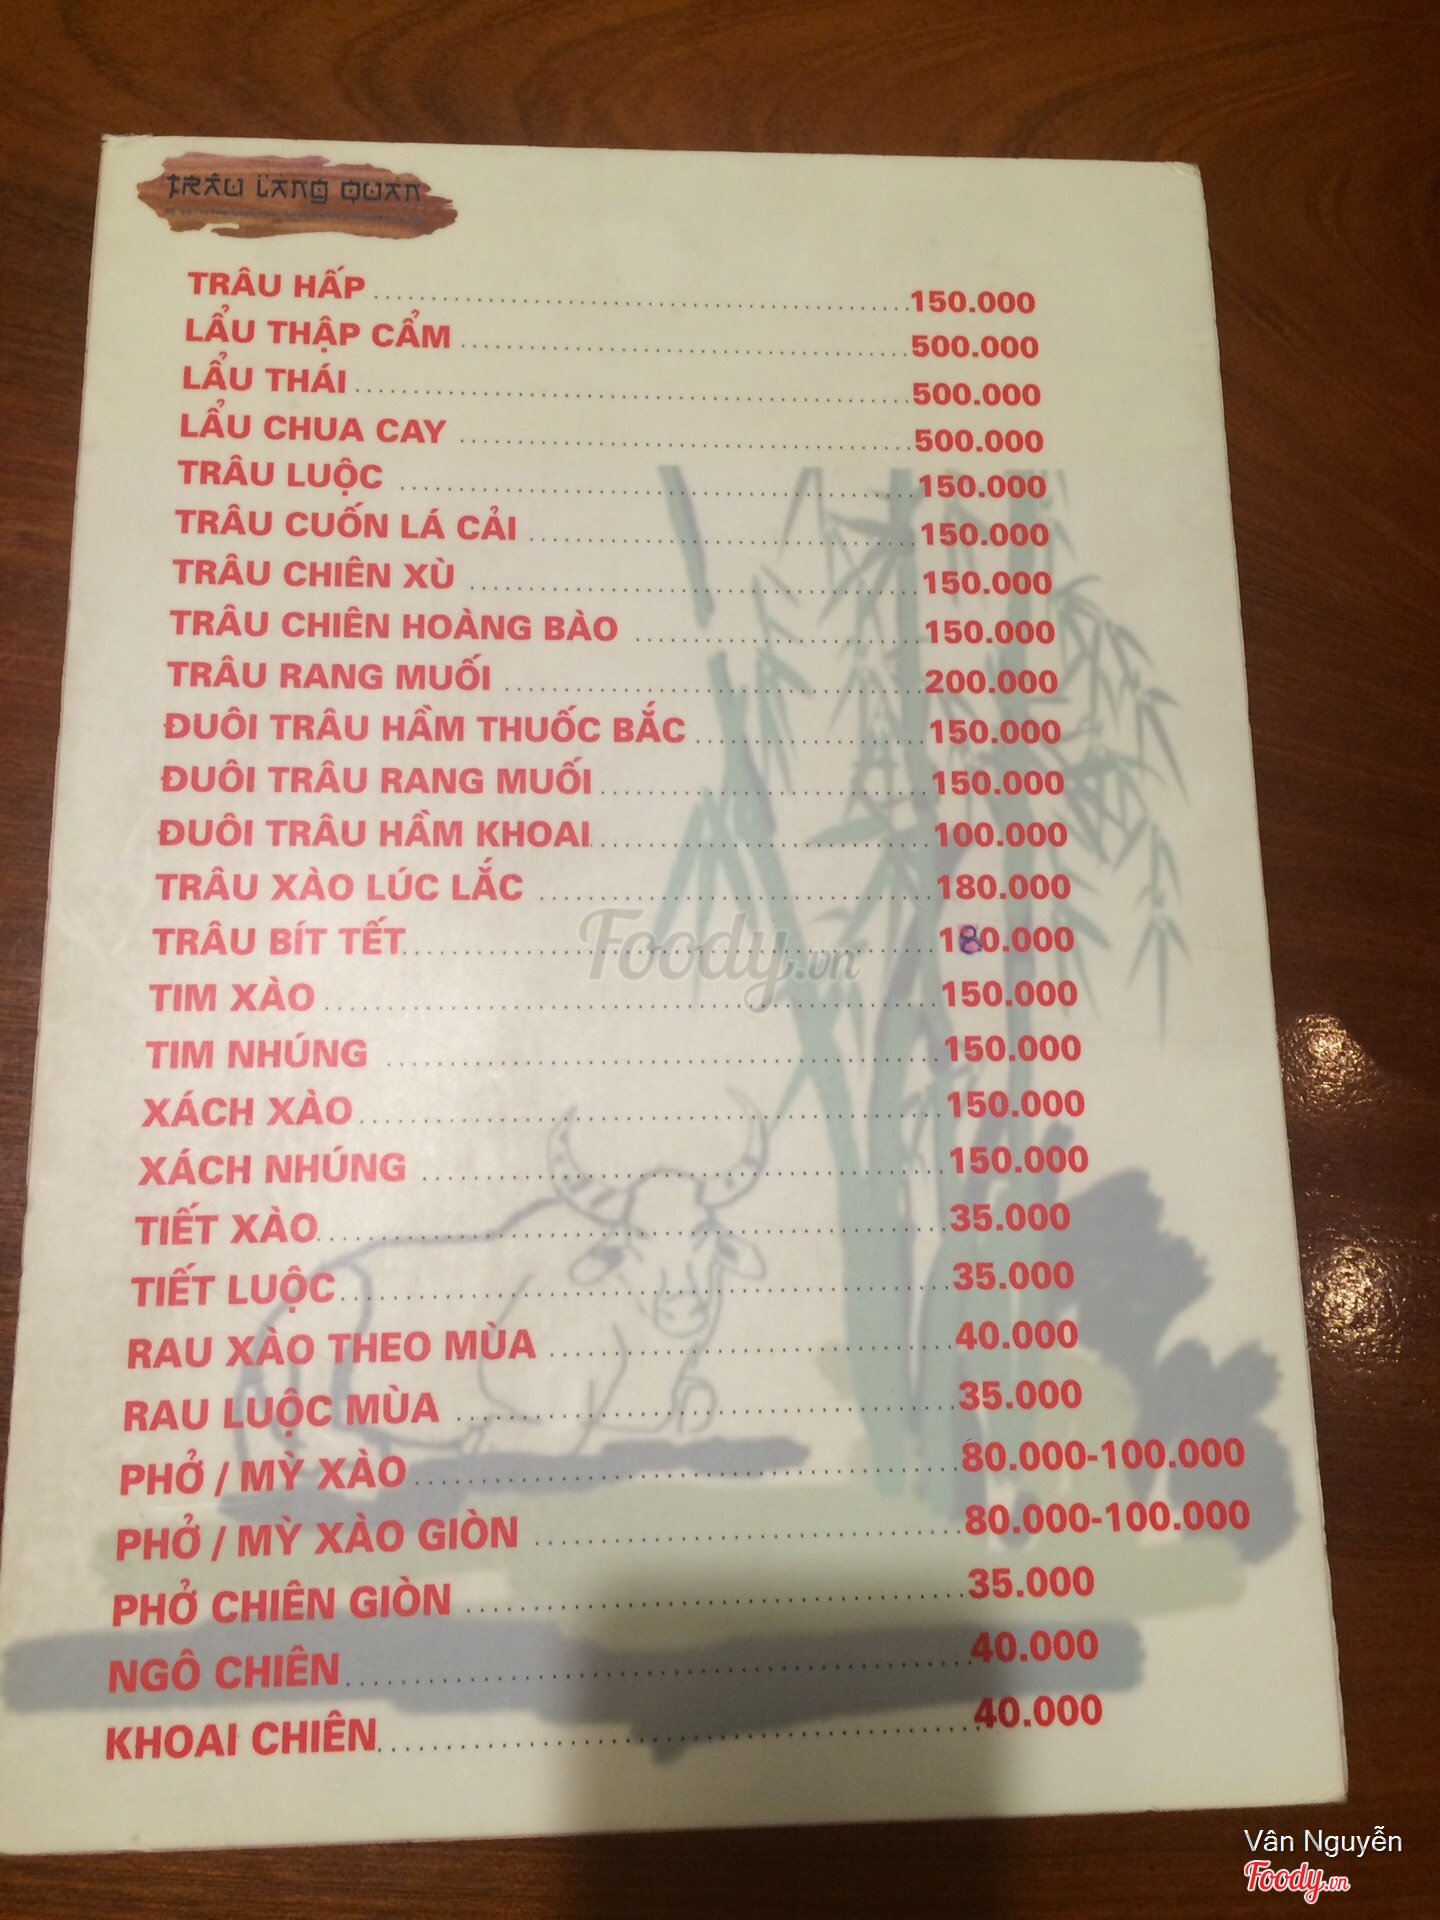 TRÂU LÀNG QUÁN
TRÂU HẤP 150.000
LẨU THẬP CẨM 500.000
LẨU THÁI 500.000
LẨU CHUA CAY 500.000
TRÂU LUỘC 150.000
TRÂU CUỐN LÁ CẢI 150.000
TRÂU CHIÊN XÙ 150.000
TRÂU CHIÊN HOÀNG BÀO 150.000
TRÂU RANG MUỐI 200.000
ĐUÔI TRÂU HẦM THUỐC BẮC 150.000
ĐUÔI TRÂU RANG MUỐI 150.000
ĐUÔI TRÂU HẦM KHOAI 100.000
TRÂU XÀO LÚC LẮC 180.000
TRÂU BÍT TẾT 180.000
TIM XÀO 150.000
TIM NHÚNG 150.000
XÁCH XÀO 150.000
XÁCH NHÚNG 150.000
TIẾT XÀO 35.000
TIẾT LUỘC 35.000
RAU XÀO THEO MÙA 40.000
RAU LUỘC MÙA 35.000
PHỞ / MỲ XÀO 80.000-100.000
PHỞ / MỲ XÀO GIÒN 80.000-100.000
PHỞ CHIÊN GIÒN 35.000
NGÔ CHIÊN 40.000
KHOAI CHIÊN 40.000
Foody.vn
Vân Nguyễn
Foody.vn